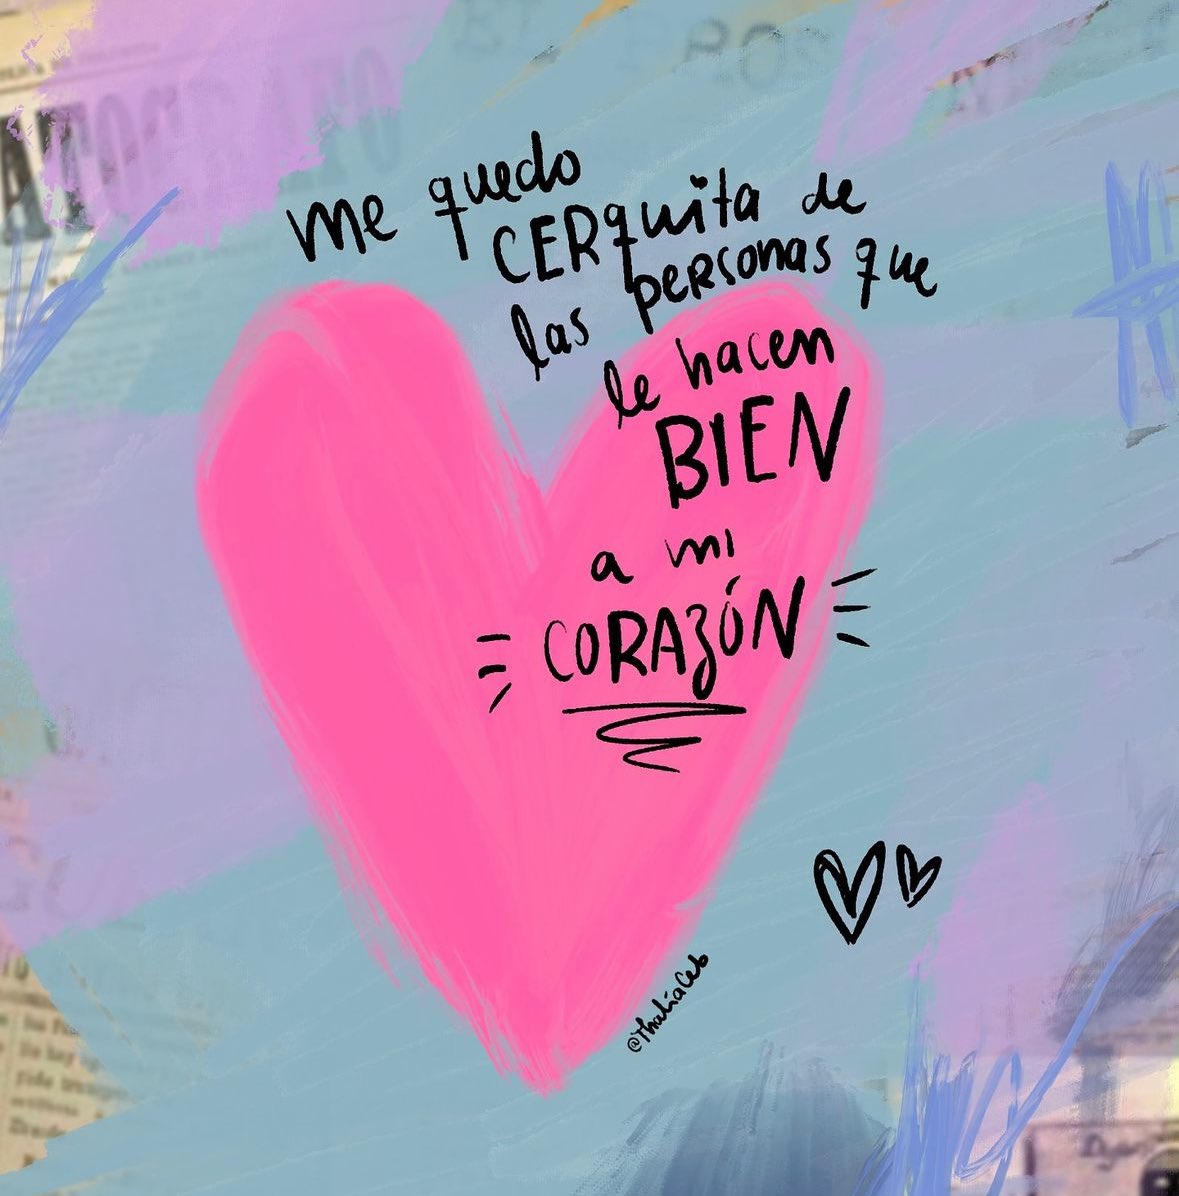 me quedo
CERquita de
las personas que
le hacen
BIEN
a mi
CORAZÓN
@ThaliaCeb